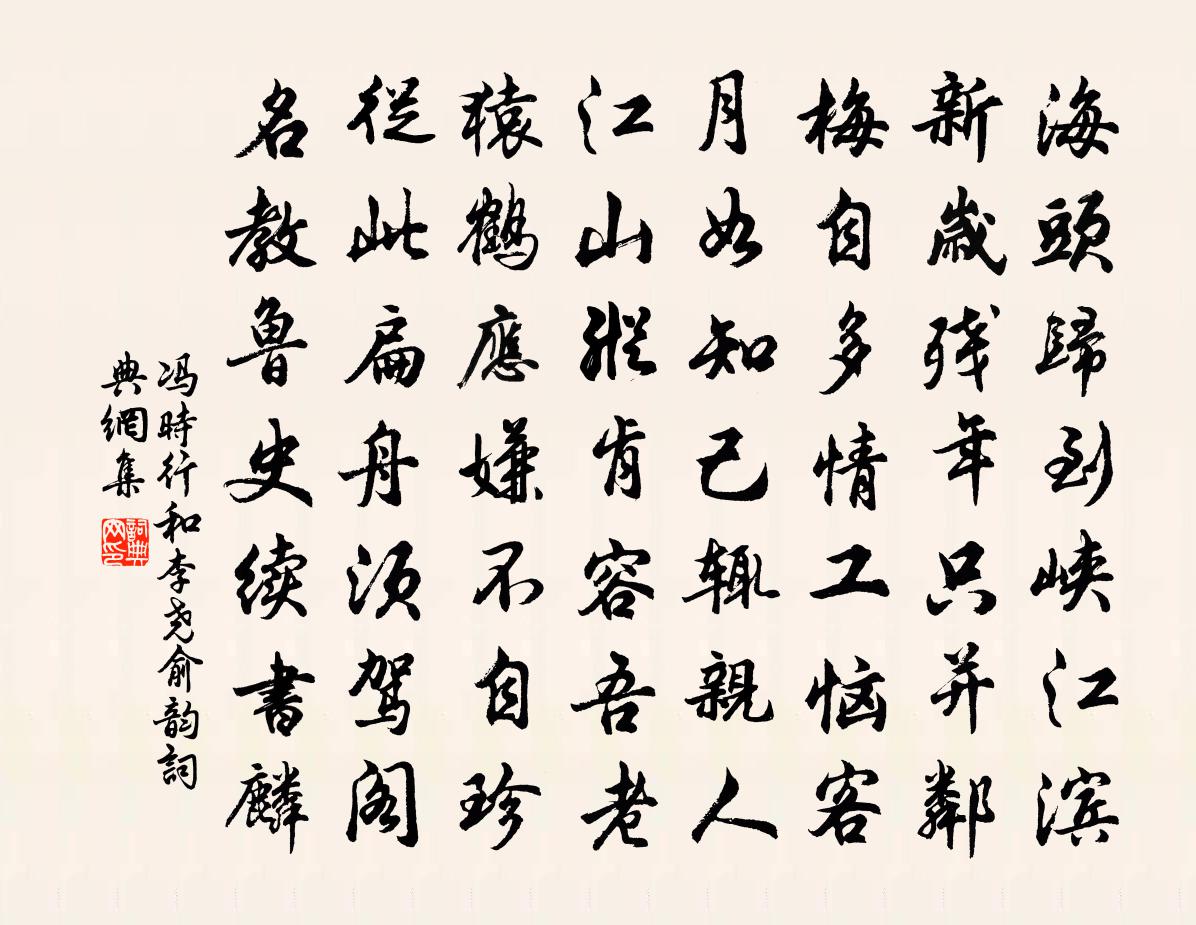 海頭歸到峽江滨
新歲残年只并鄰
梅自多情工恼客
月如知己辄親人
江山縱肯容吾老
猿鶴應嫌不自珍
從此扁舟须驾阁
名教魯史续書麟
冯時行和李尧俞韵詞
典網集
詞典网印